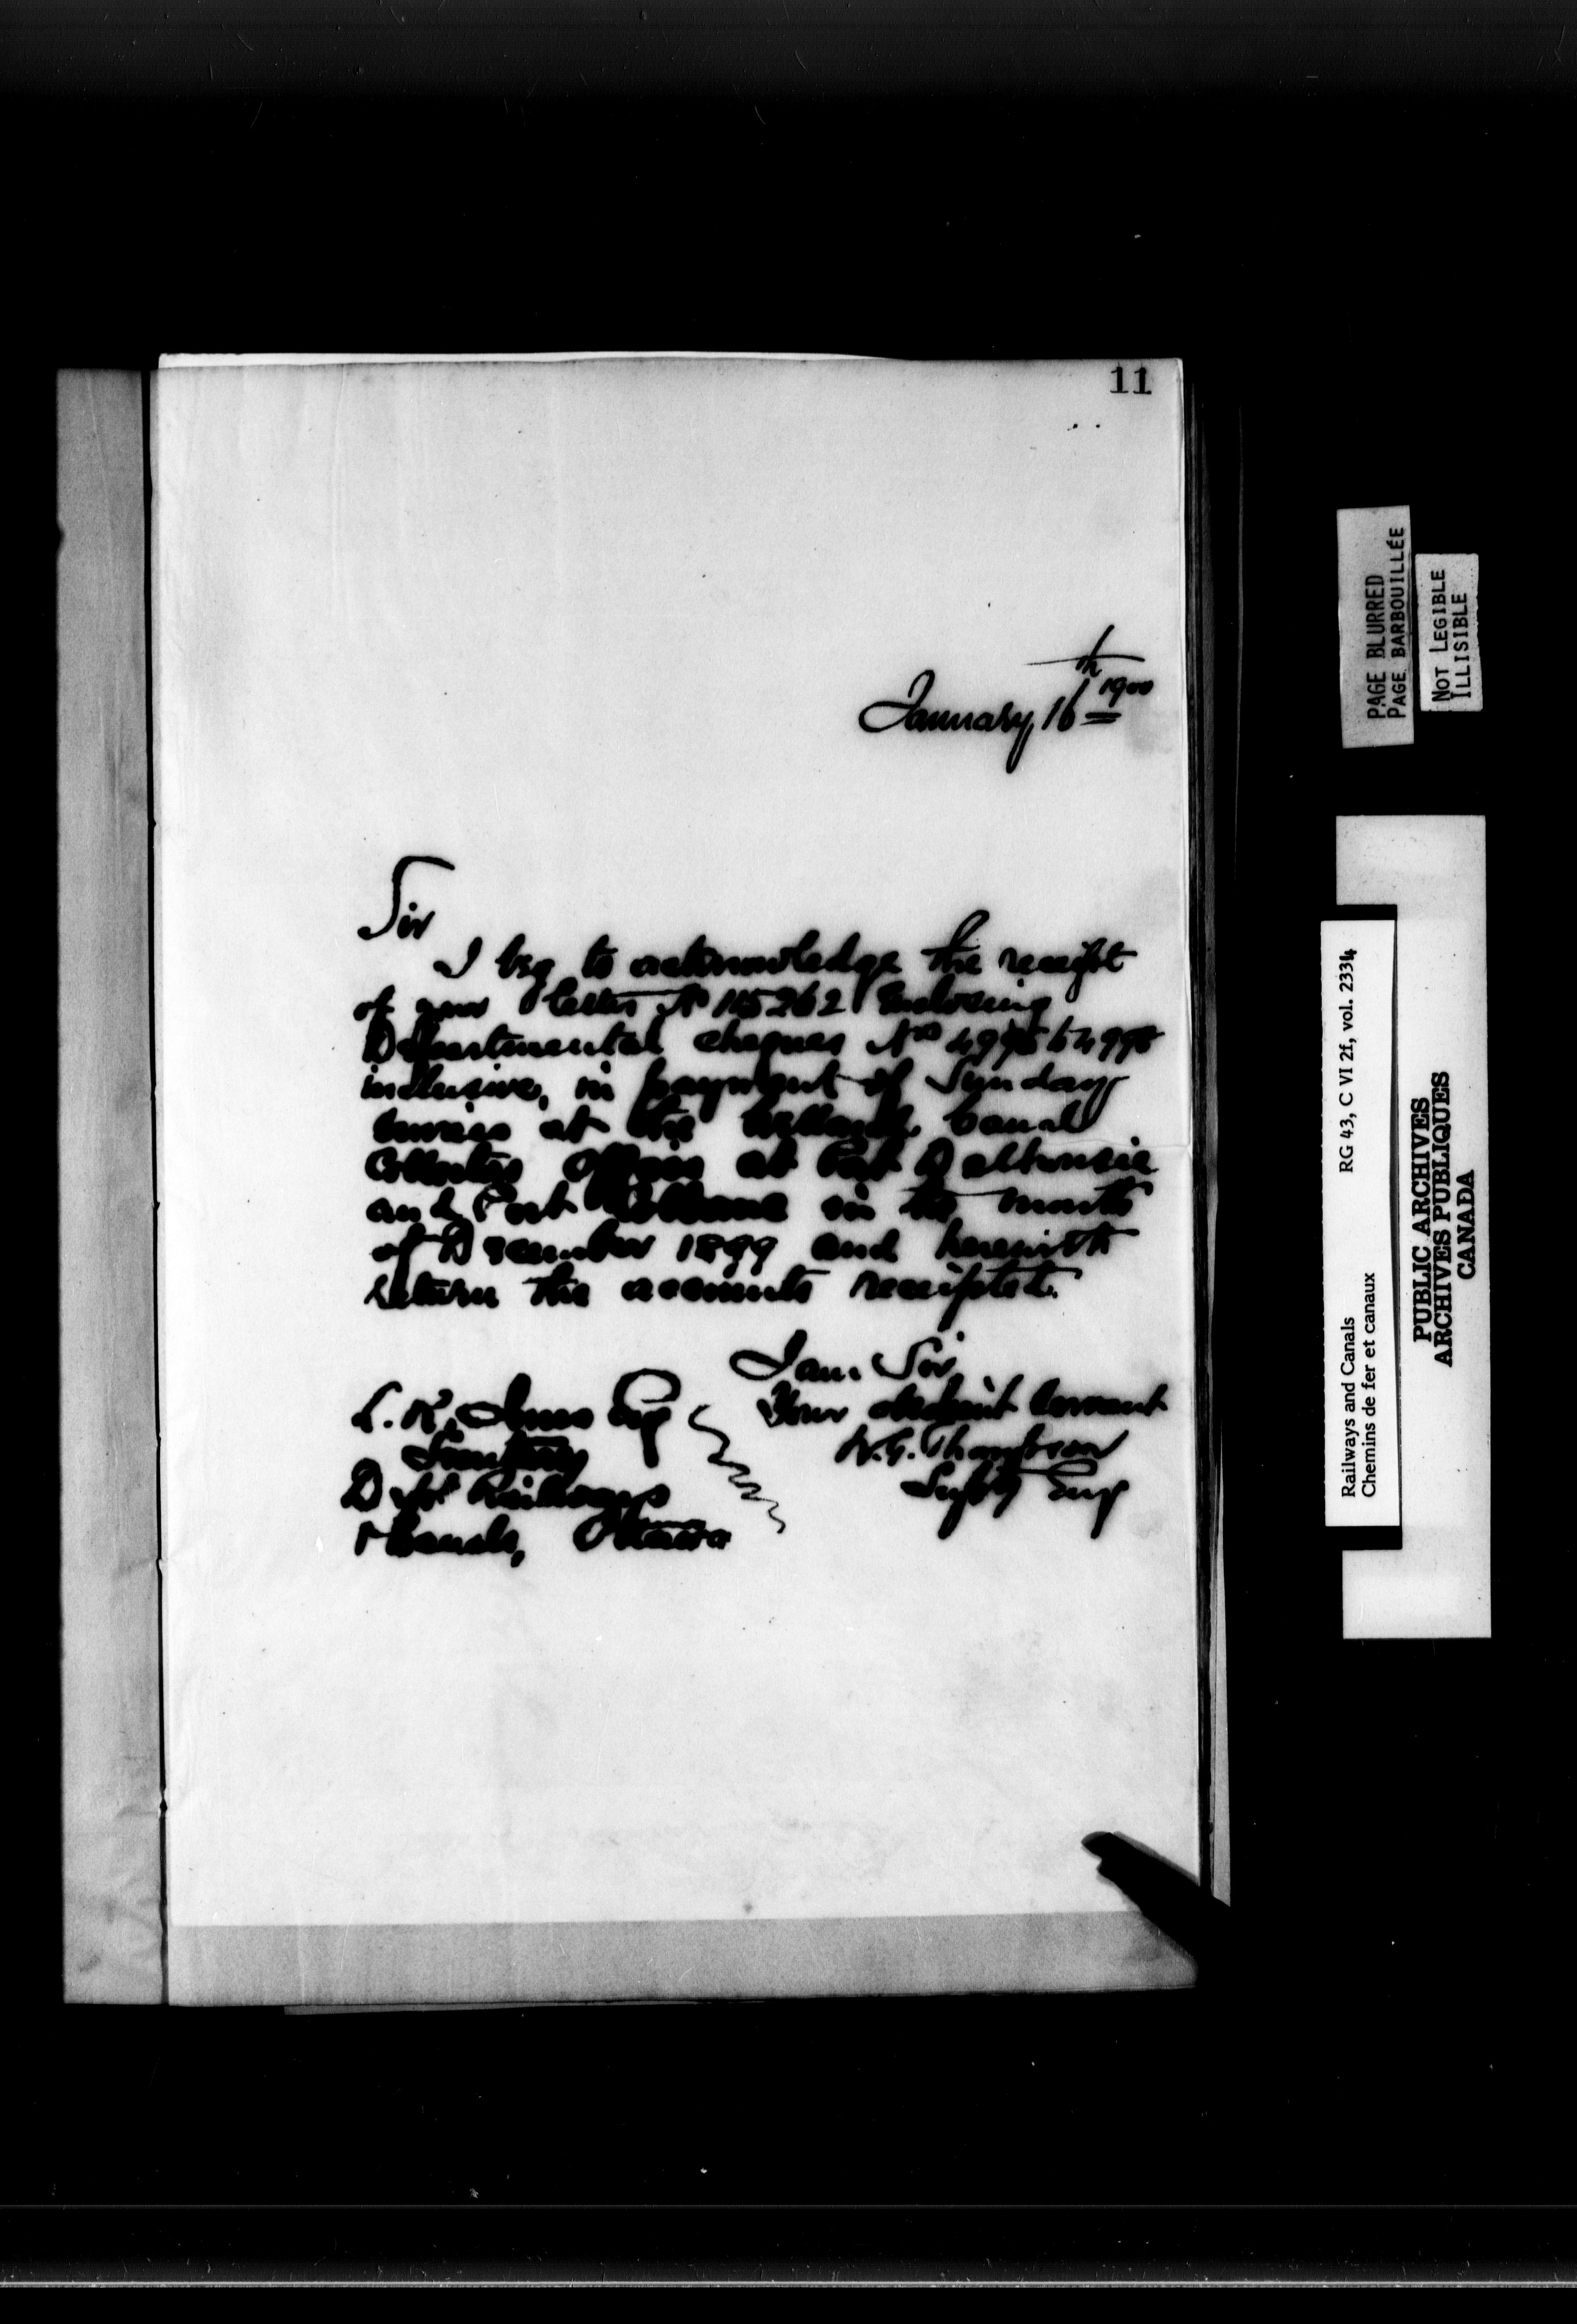 11
January 16th 1900
Sir
I beg to acknowledge the receipt
of your letter No 115262 Enclosing
Departmental cheques Nos to 4998
inclusive, in payment of Sunday
at the Welland Canal
Collectors Offices at Port Dalhousie
and Port Colborne in the month
of December 1899 and herewith
return the accounts receipted.
I am Sir
Your obedient servant
W.G. Thompson
Suptg Eng
L. K. Jones Esq
Secretary
Dept Railways
& Canals, Ottawa
PAGE BLURRED
PAGE BARBOUILLÉE
NOT LEGIBLE
ILLISIBLE
Railways and Canals RG 43, C VI 2f, vol. 2334
Chemins de fer et canaux
PUBLIC ARCHIVES
ARCHIVES PUBLIQUES
CANADA